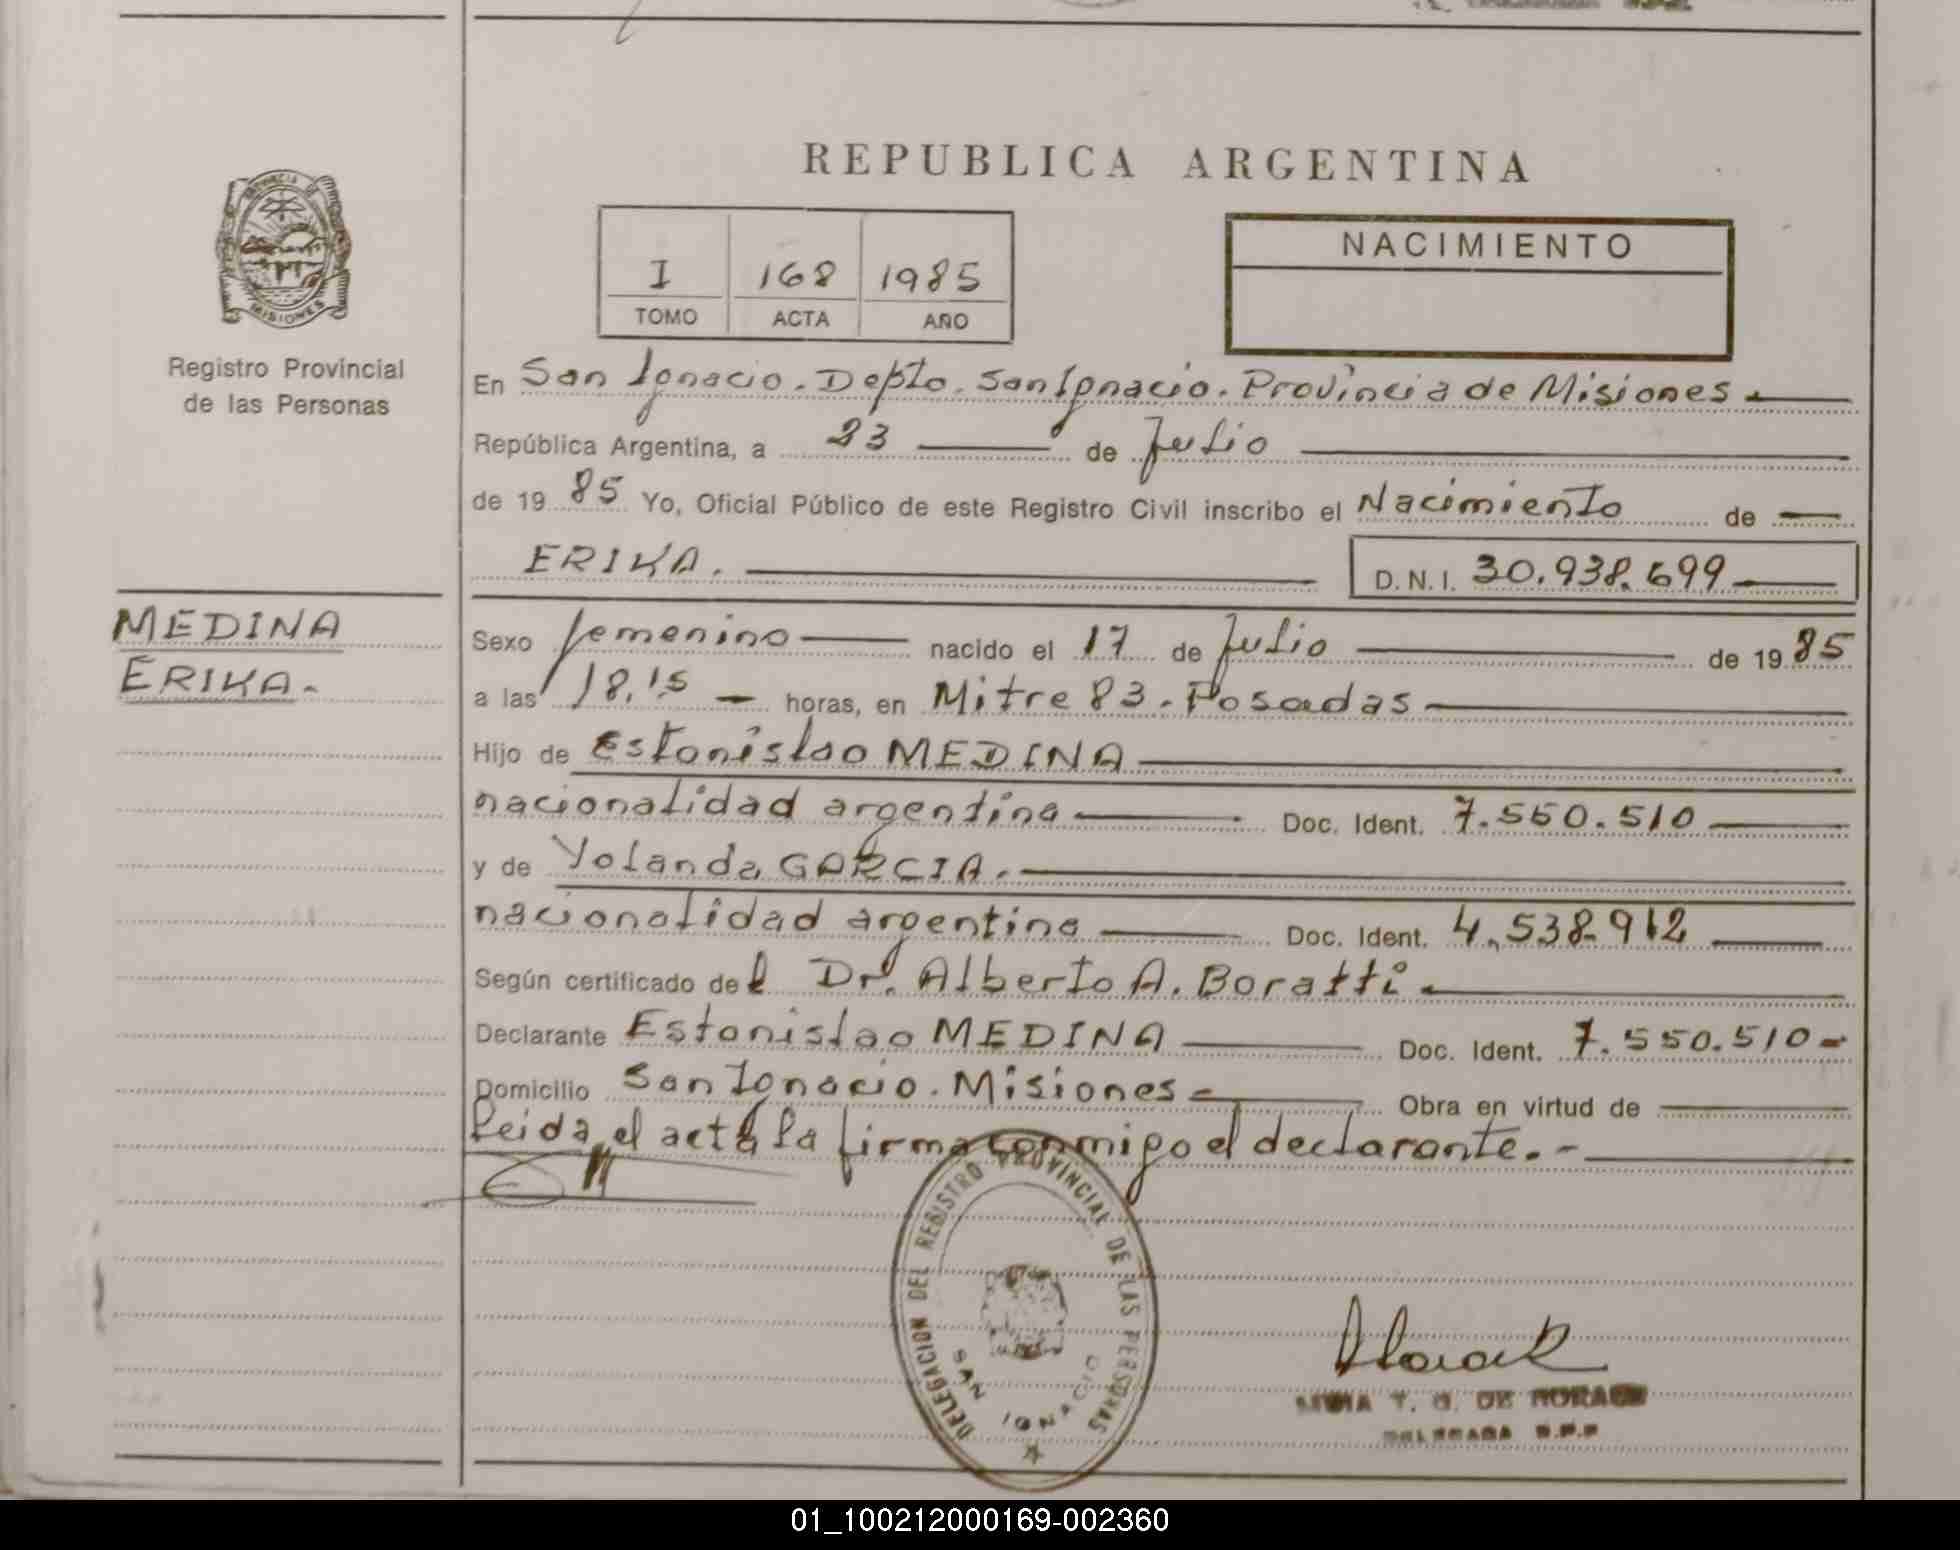 REPUBLICA ARGENTINA
PROVINCIA DE
MISIONES
Registro Provincial
de las Personas
I 168 1985
TOMO ACTA AÑO
NACIMIENTO
En San Ignacio. Depto. San Ignacio. Provincia de Misiones
República Argentina, a 23 de Julio
de 19 85 Yo, Oficial Público de este Registro Civil inscribo el Nacimiento de
ERIKA.
D.N.I. 30.938.699
MEDINA
ERIKA.
Sexo femenino nacido el 17 de Julio de 19 85
a las 18,15 horas, en Mitre 83. Posadas
Hijo de Estanislao MEDINA
nacionalidad argentina Doc. Ident. 7.550.510
y de Yolanda GARCIA.
nacionalidad argentina Doc. Ident. 4.538.912
Según certificado del Dr. Alberto A. Boratti
Declarante Estanislao MEDINA Doc. Ident. 7.550.510-
Domicilio San Ignacio. Misiones Obra en virtud de
Leida el acta la firma conmigo el declarante.-
DELEGACION DEL REGISTRO PROVINCIAL DE LAS PERSONAS
SAN IGNACIO
T. G. DE
DELEGADA R.P.P
01_100212000169-002360